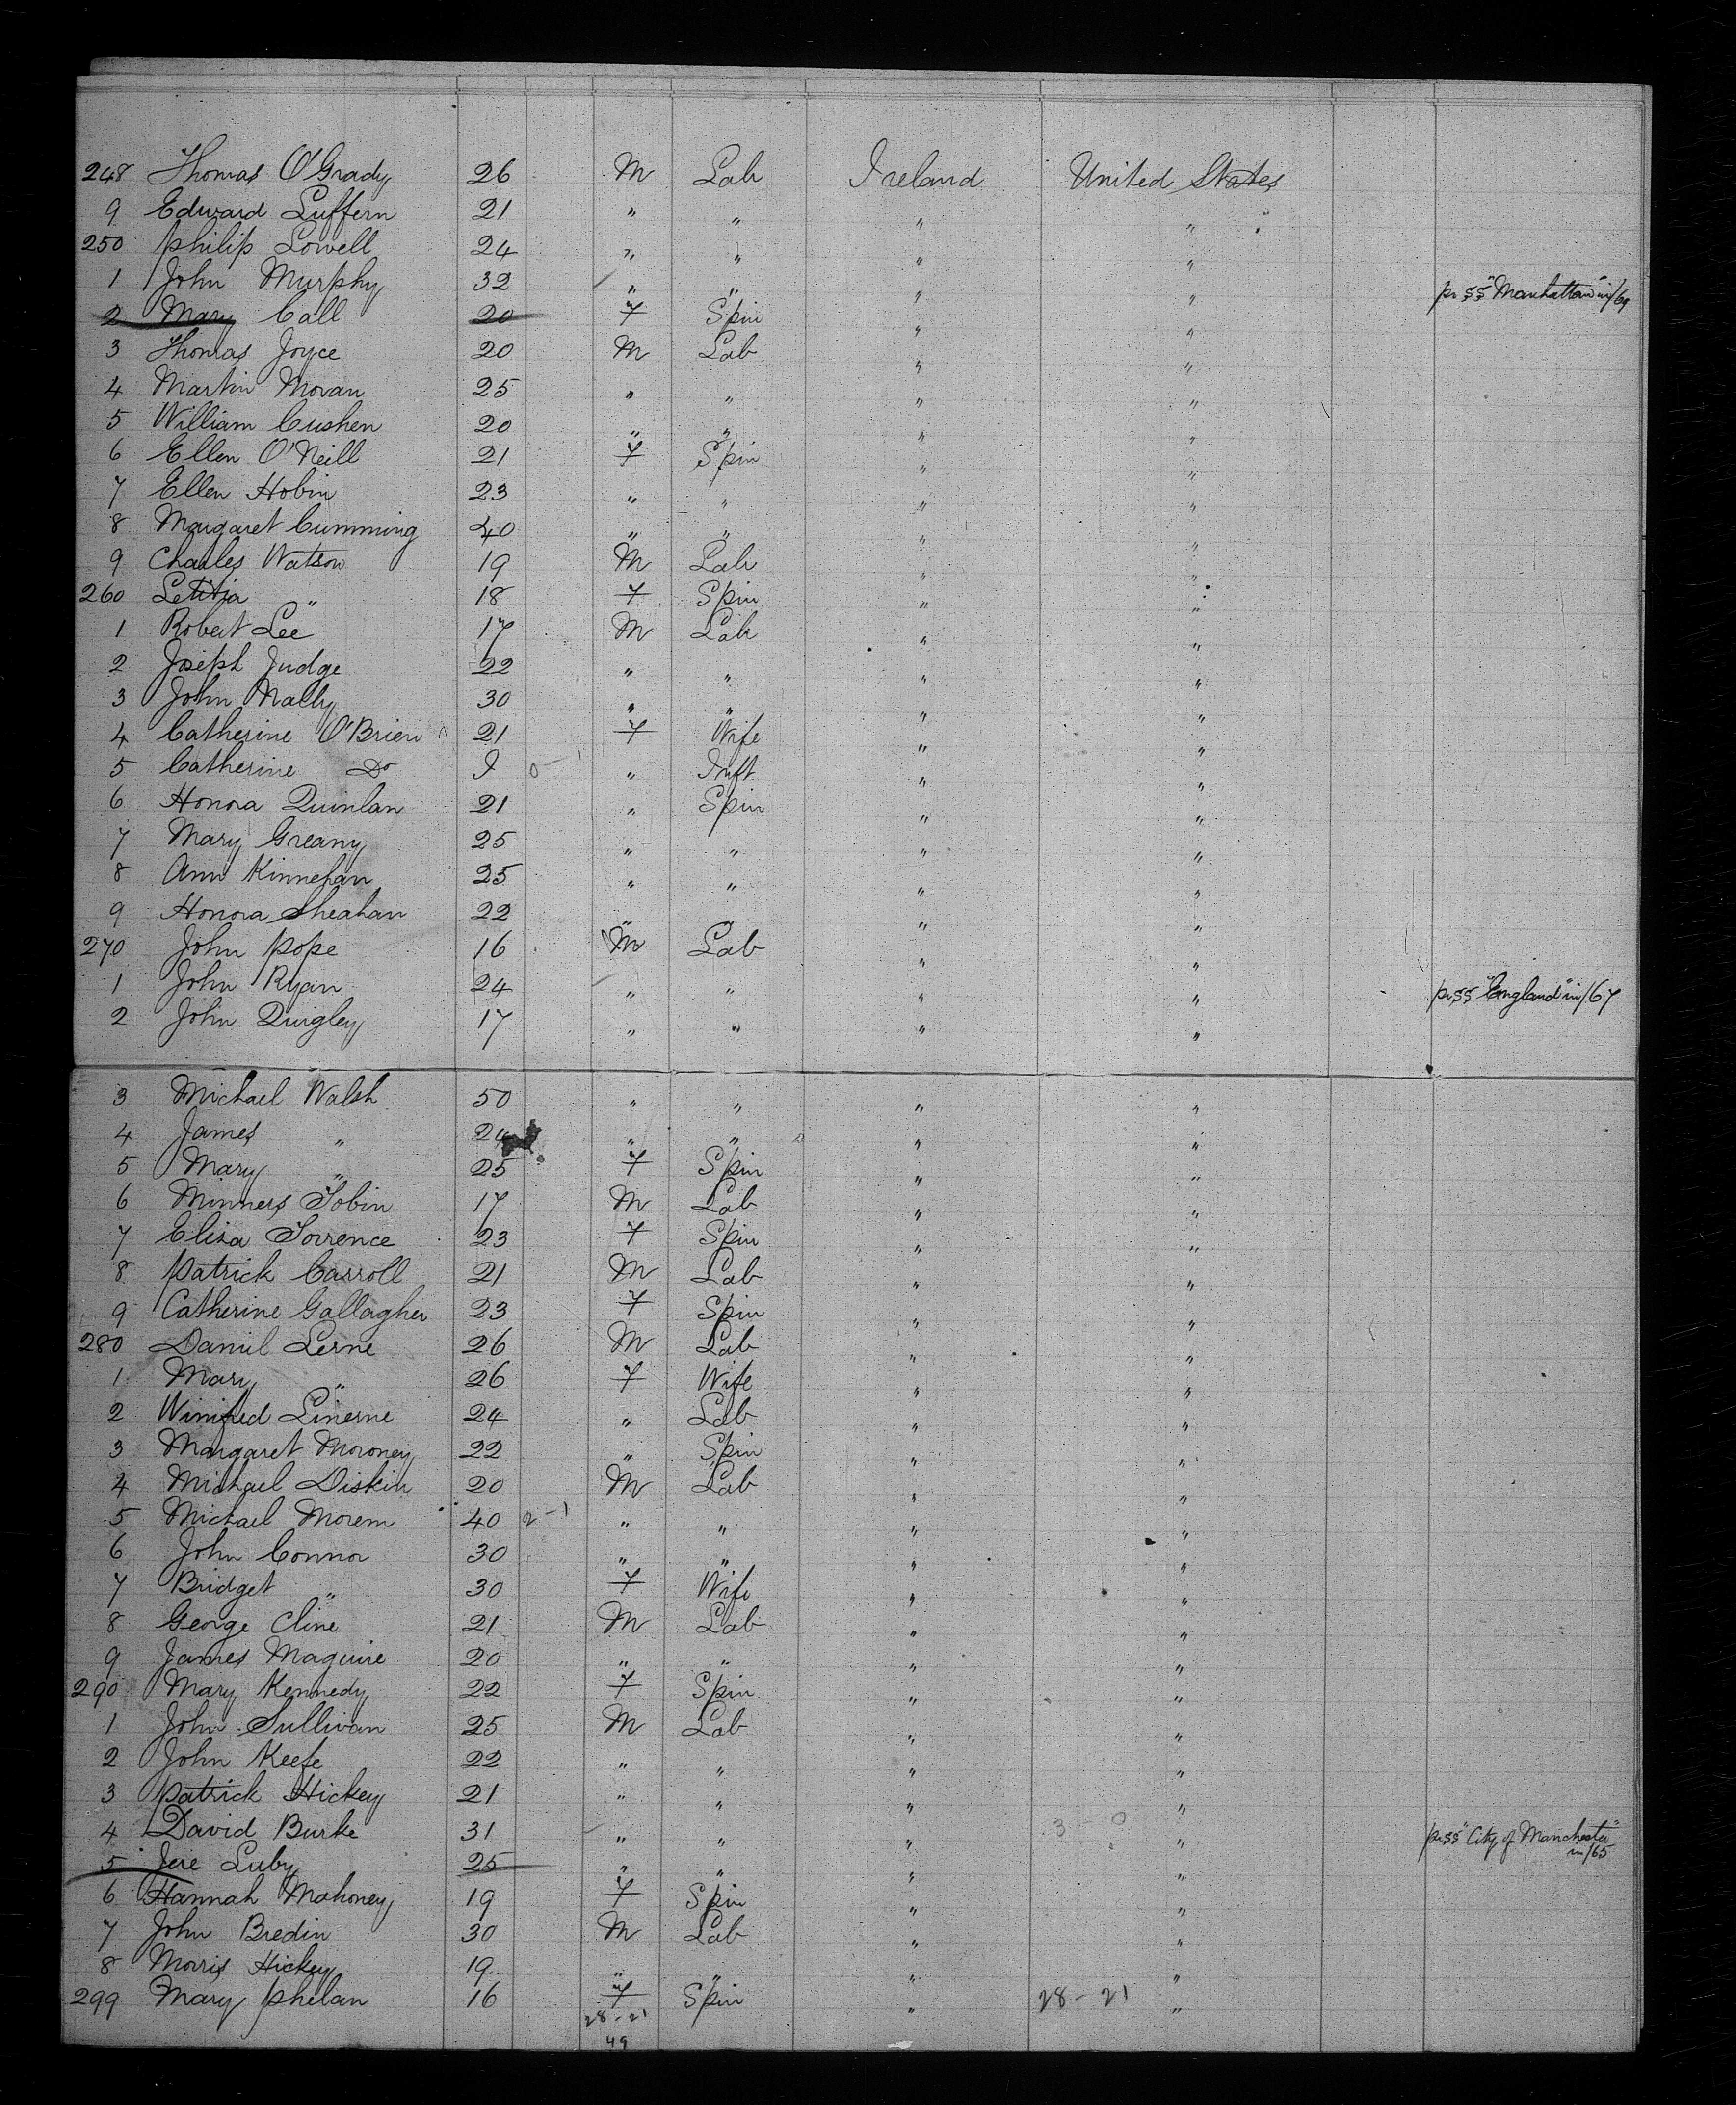 248 Thomas O'Grady 26 M Lab Ireland United States
9 Edward Luffern 21 " " " "
250 Philip Lowell 24 " " " "
1 John Murphy 32 " " " " pr SS "Manhattan" in/69
2 Mary Call 20 F Spin " "
3 Thomas Joyce 20 M Lab " "
4 Martin Moran 25 " " " "
5 William Cushen 20 " " " "
6 Ellen O'Neill 21 F Spin " "
7 Ellen Hobin 23 " " " "
8 Margaret Cumming 40 " " " "
9 Charles Watson 19 M Lab " "
260 Letitia " 18 F Spin " "
1 Robert Lee 17 M Lab " "
2 Joseph Judge 22 " " " "
3 John Nally 30 " " " "
4 Catherine O'Brien 21 F Wife " "
5 Catherine Do I 0-1 " Inft " "
6 Honora Quinlan 21 " Spin " "
7 Mary Greany 25 " " " "
8 Ann Kinnehan 25 " " " "
9 Honora Sheahan 22 " " " "
270 John Pope 16 M Lab " "
1 John Ryan 24 " " " " pr SS "England" in/67
2 John Quigley 17 " " " "
3 Michael Walsh 50 " " " "
4 James " 24 " " " "
5 Mary " 25 F Spin " "
6 Minners Tobin 17 M Lab " "
7 Eliza Torrence 23 F Spin " "
8 Patrick Carroll 21 M Lab " "
9 Catherine Gallagher 23 F Spin " "
280 Daniel Lerne 26 M Lab " "
1 Mary " 26 F Wife " "
2 Winifred Linerne 24 " Lab " "
3 Margaret Moroney 22 " Spin " "
4 Michael Diskin 20 M Lab " "
5 Michael Morem 40 2-1 " " " "
6 John Connor 30 " " " "
7 Bridget " 30 F Wife " "
8 George Cline 21 M Lab " "
9 James Maguire 20 " " " "
290 Mary Kennedy 22 F Spin " "
1 John Sullivan 25 M Lab " "
2 John Keefe 22 " " " "
3 Patrick Hickey 21 " " " "
4 David Burke 31 " " " 3-0 " pr SS "City of Manchester"
in/65
5 Jere Luby 25 " " " "
6 Hannah Mahoney 19 F Spin " "
7 John Bredin 30 M Lab " "
8 Morris Hickey 19 " " " "
299 Mary Phelan 16 F Spin " 28-21 "
28-21
49